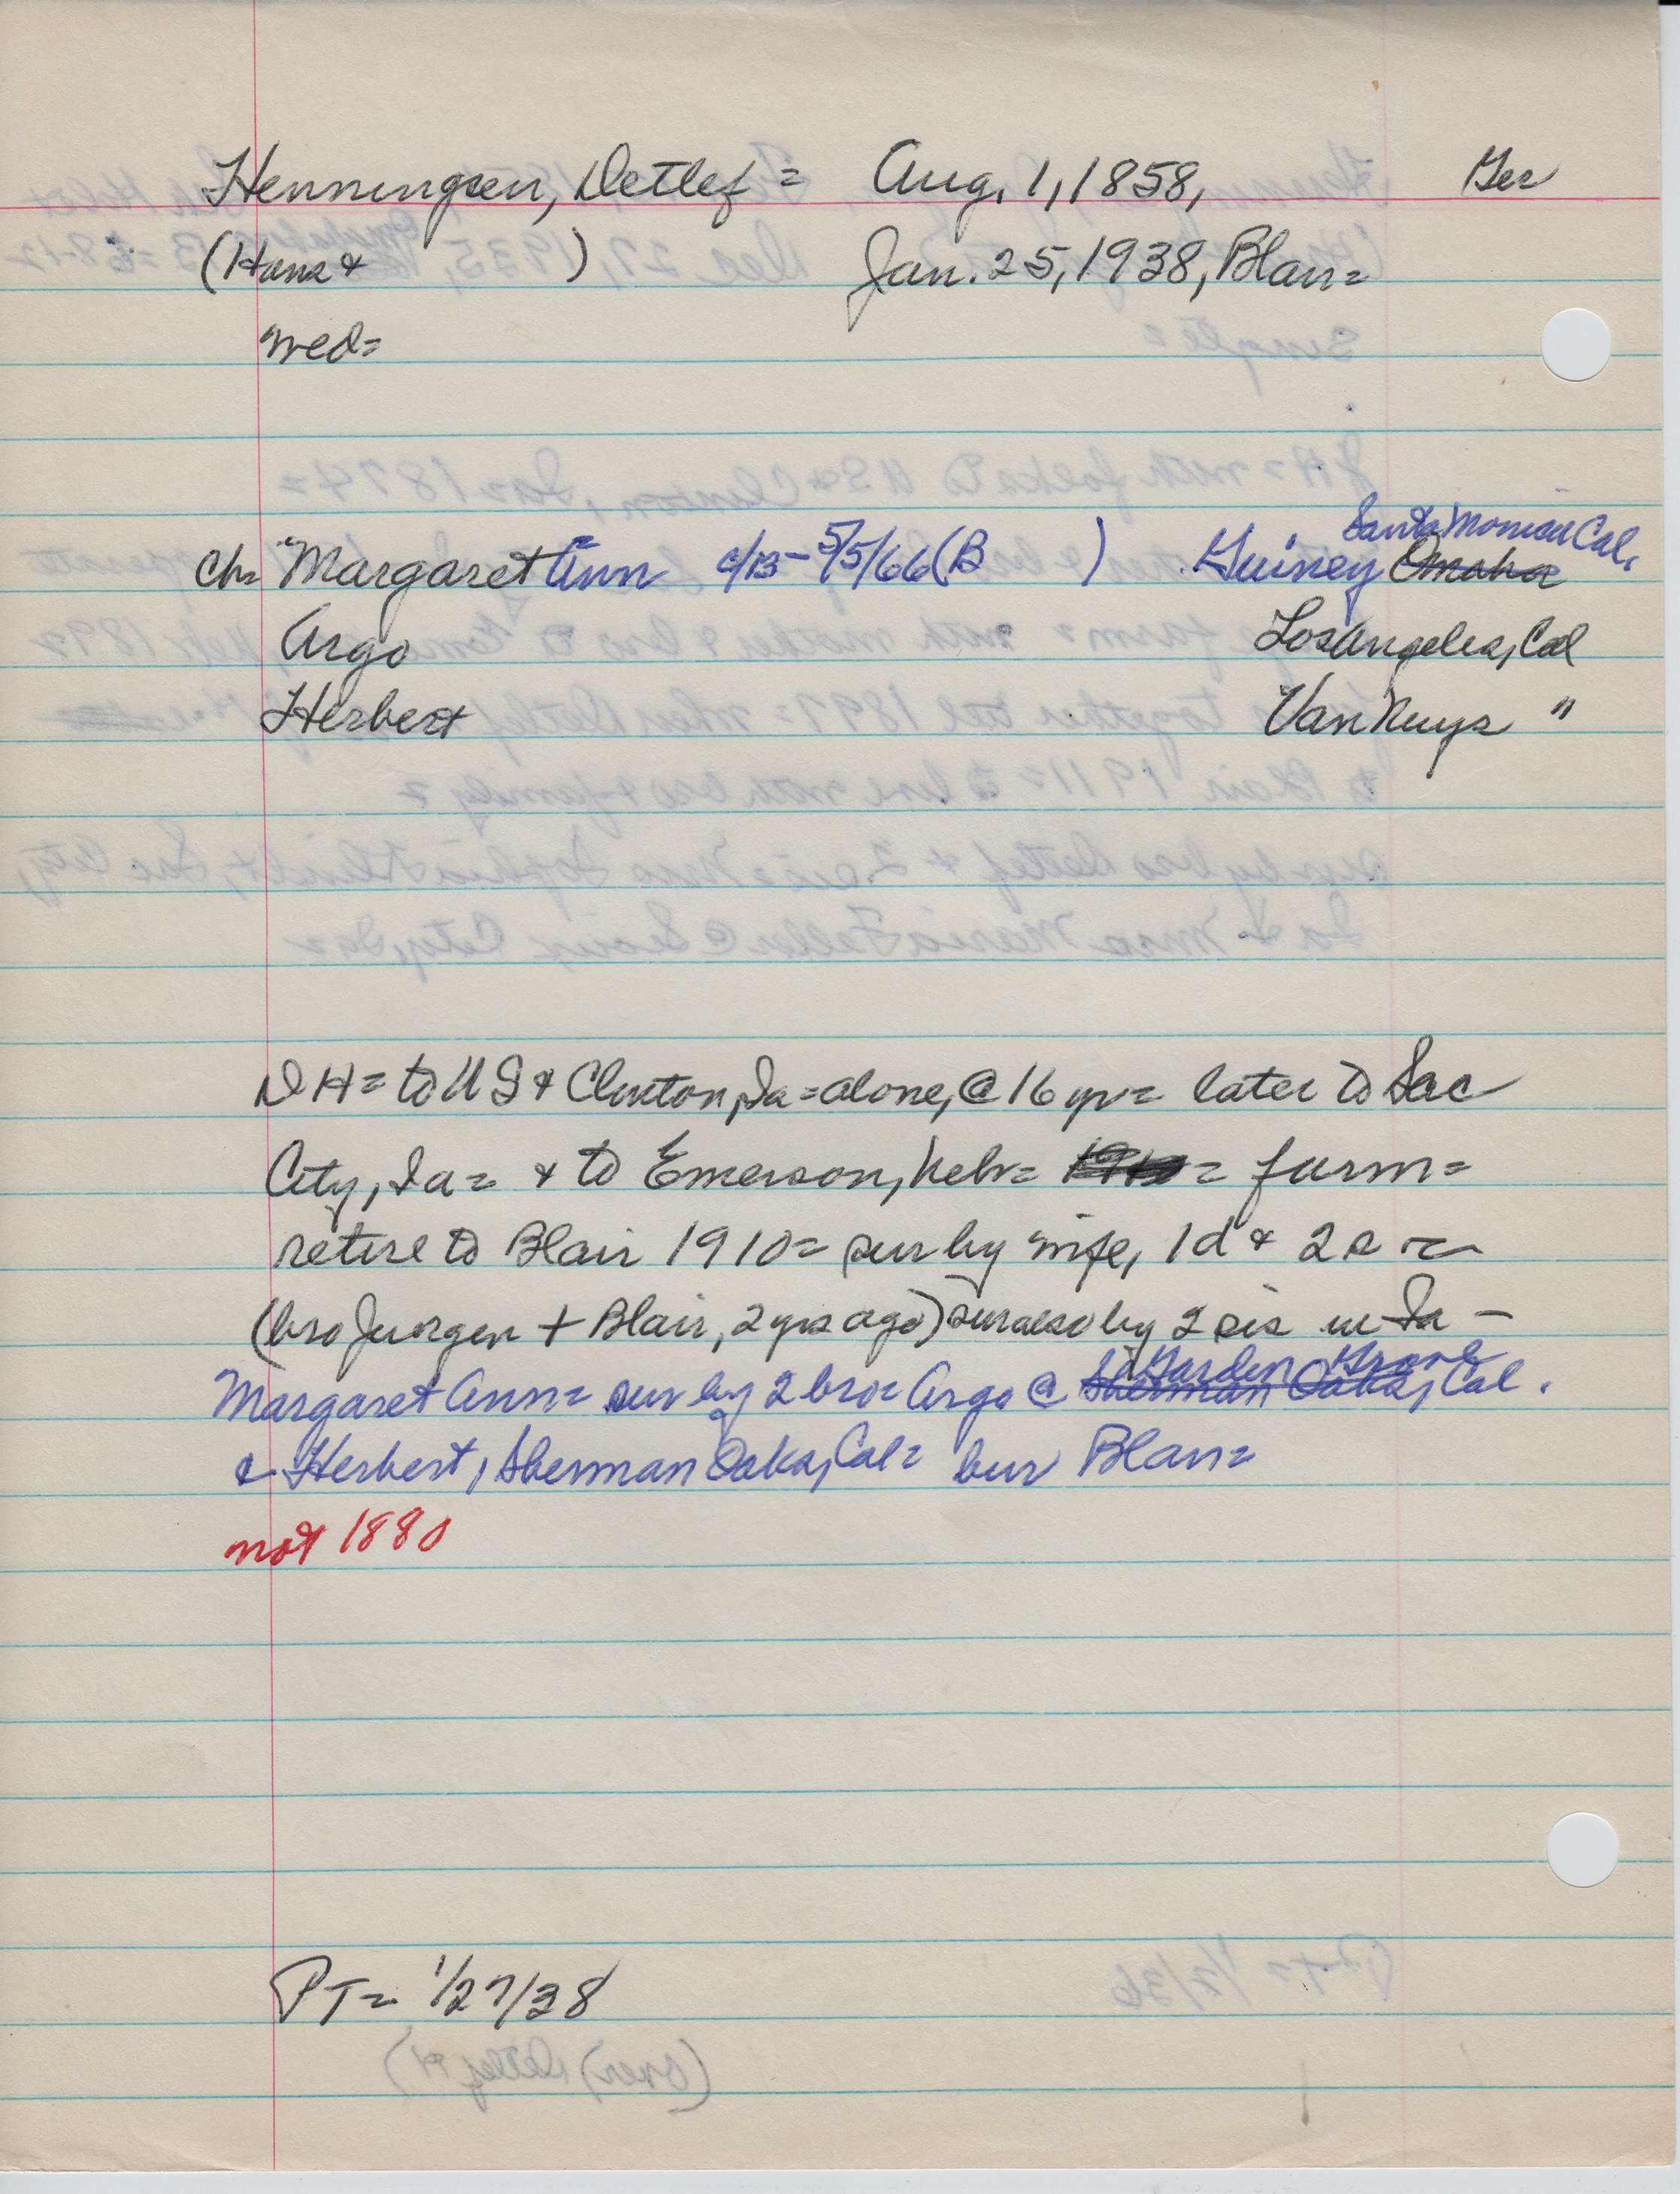 Henningsen, Detlef = Aug. 1, 1858, Ger
(Hans & ) Jan. 25, 1938, Blair=
wed=
Santa Monica Cal.
ch= Margaret Ann c/13 - 5/5/66 (B ) Guiney Omaha
Argo Los Angeles, Cal
Herbert Van Nuys "
DH = to US & Clinton, Ia = alone, @ 16 yr = later to Sac
City, Ia = & to Emerson, Neb = 1910 = farm =
retire to Blair 1910 = sur by wife, 1 d & 2 s
(bro Juergen + Blair, 2 yrs ago) sur also by 2 sis in Ia -
Garden Grove
Margaret Ann = sur by 2 bro = Argo @ Sherman Oaks, Cal.
& Herbert, Sherman Oaks, Cal = bur Blair =
not 1880
PT = 1/27/38